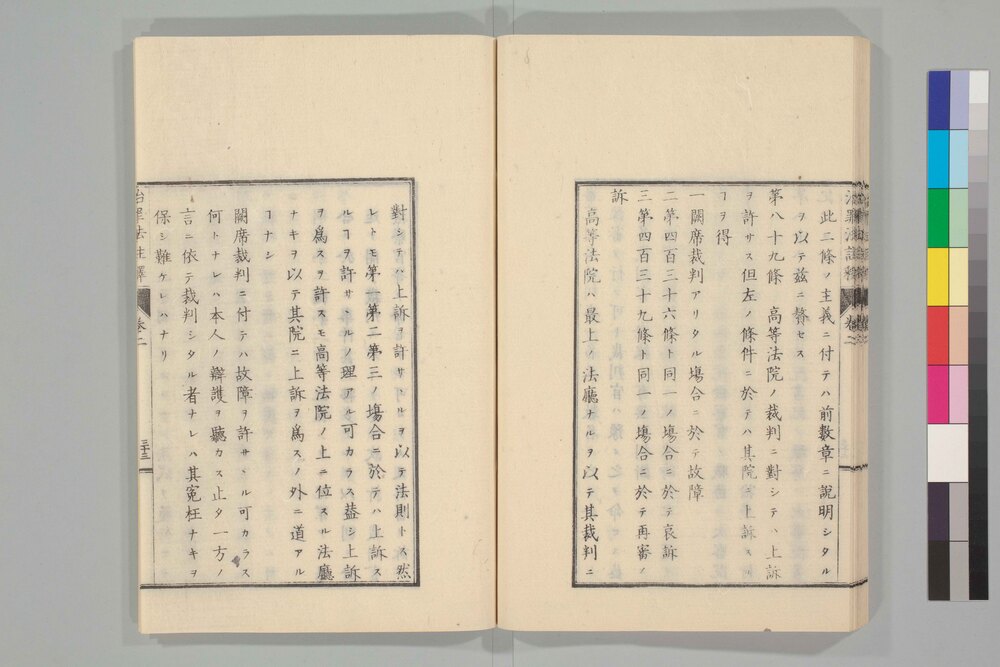 此三條ノ主義ニ付テハ前數章ニ說明シタル
ヲ以テ茲ニ贅セス
第八十九條 高等法院ノ裁判ニ對シテハ上訴
ヲ許サス但左ノ條件ニ於テハ其院ニ上訴スル
ヿヲ得
一 闕席裁判アリタル塲合ニ於テ故障
二 第四百三十六條ト同一ノ塲合ニ於テ哀訴
三 第四百三十九條ト同一ノ塲合ニ於テ再審ノ
訴
高等法院ハ最上ノ法廳ナルヲ以テ其裁判ニ
對シテハ上訴ヲ許サヽルヲ以テ法則トス然
レトモ第一第二第三ノ塲合ニ於テハ上訴ス
ルヿヲ許サヽルノ理アル可カラス葢シ上訴
ヲ爲スヲ許スモ高等法院ノ上ニ位スル法廳
ナキヲ以テ其院ニ上訴ヲ爲スノ外ニ道アル
ヿナシ
闕席裁判ニ付テハ故障ヲ許サヽル可カラス
何トナレハ本人ノ辯護ヲ聽カス止タ一方ノ
言ニ依テ裁判シタル者ナレハ其寃枉ナキヲ
保シ難ケレハナリ
治罪法註釋 卷二 三十三